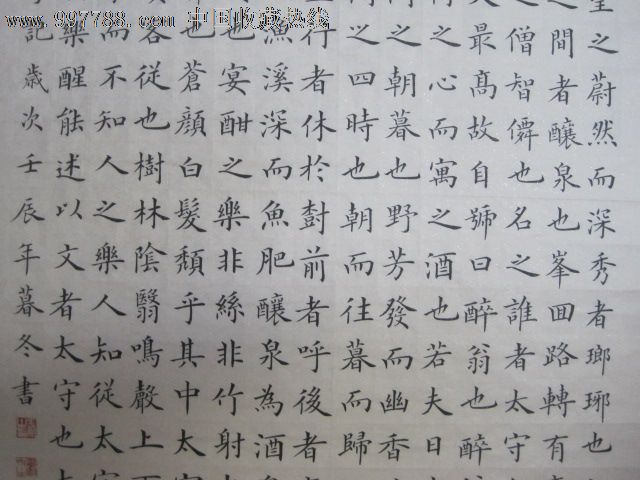 www.997788.com 中国收藏热线
之蔚然而深秀者瑯琊也
之間者釀泉也峯回路轉有
之僧智僊也名之誰者太守
最高故自號曰醉翁也醉
之心而寓之酒也若夫日
之朝暮也野芳發而幽香
之四時也朝而往暮而歸
行者休於樹前者呼後者
漁溪深而魚肥釀泉為酒
也宴酣之樂非絲非竹射
也蒼顏白髮頹乎其中太
客從也樹林陰翳鳴聲上
而不知人之樂人知從太
樂醒能述以文者太守也
記歲次壬辰年暮冬書